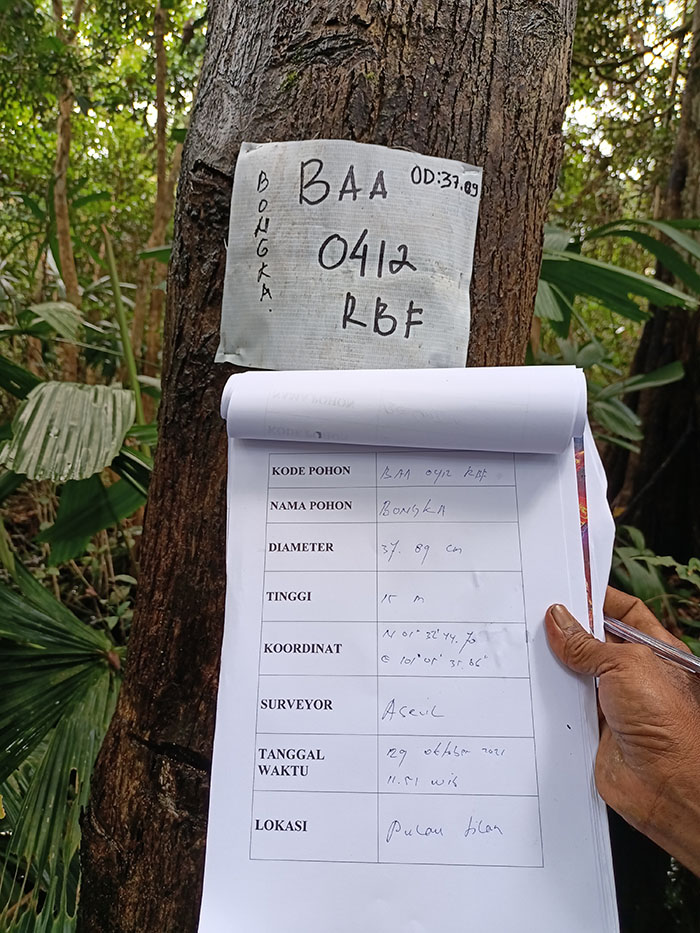 BONGKA.
BAA OD:37.89
0412
RBF
KODE POHON BAA 0412 RBF
NAMA POHON BONGKA
DIAMETER 37.89 cm
TINGGI 15 m
KOORDINAT N 01° 32' 44.70
E 101° 05' 35.86"
SURVEYOR
TANGGAL WAKTU 29 oktober 2021
11.51 wib
LOKASI Pulau